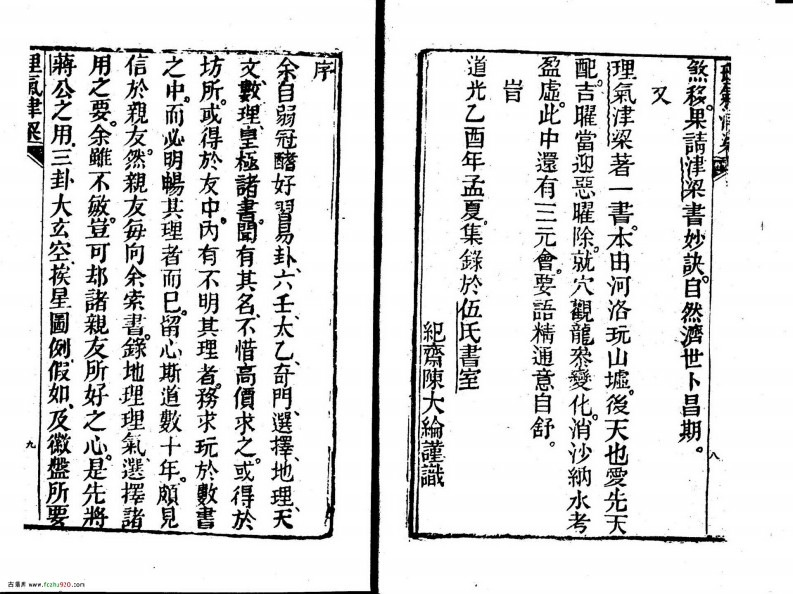 煞移果請津梁書妙訣。自然濟世卜昌期。
又
理氣津梁著一書。本由河洛玩山墟。後天也愛先天
配。吉曜當迎惡曜除。就穴觀龍叅變化。消沙納水考
盈虛。此中還有三元會。要語精通意自舒。
旹
道光乙酉年孟夏。集錄於伍氏書室
紀齋陳大綸謹識
八
序
余自弱冠醝好習易卦、六壬、太乙、奇門、選擇、地理、天
文、數理、皇極諸書。聞有其名、不惜高價求之。或得於
坊所。或得於友中。內有不明其理者。務求玩於數書
之中。而必明暢其理者而已。留心斯道數十年。頗見
信於親友。然親友每向余索書。錄地理理氣選擇諸
用之要。余雖不敏。豈可却諸親友所好之心。是先將
蔣公之用、三卦大玄空、挨星圖例、假如、及徽盤所要
理氣津梁
九
古籍库 www.fczhu920.com